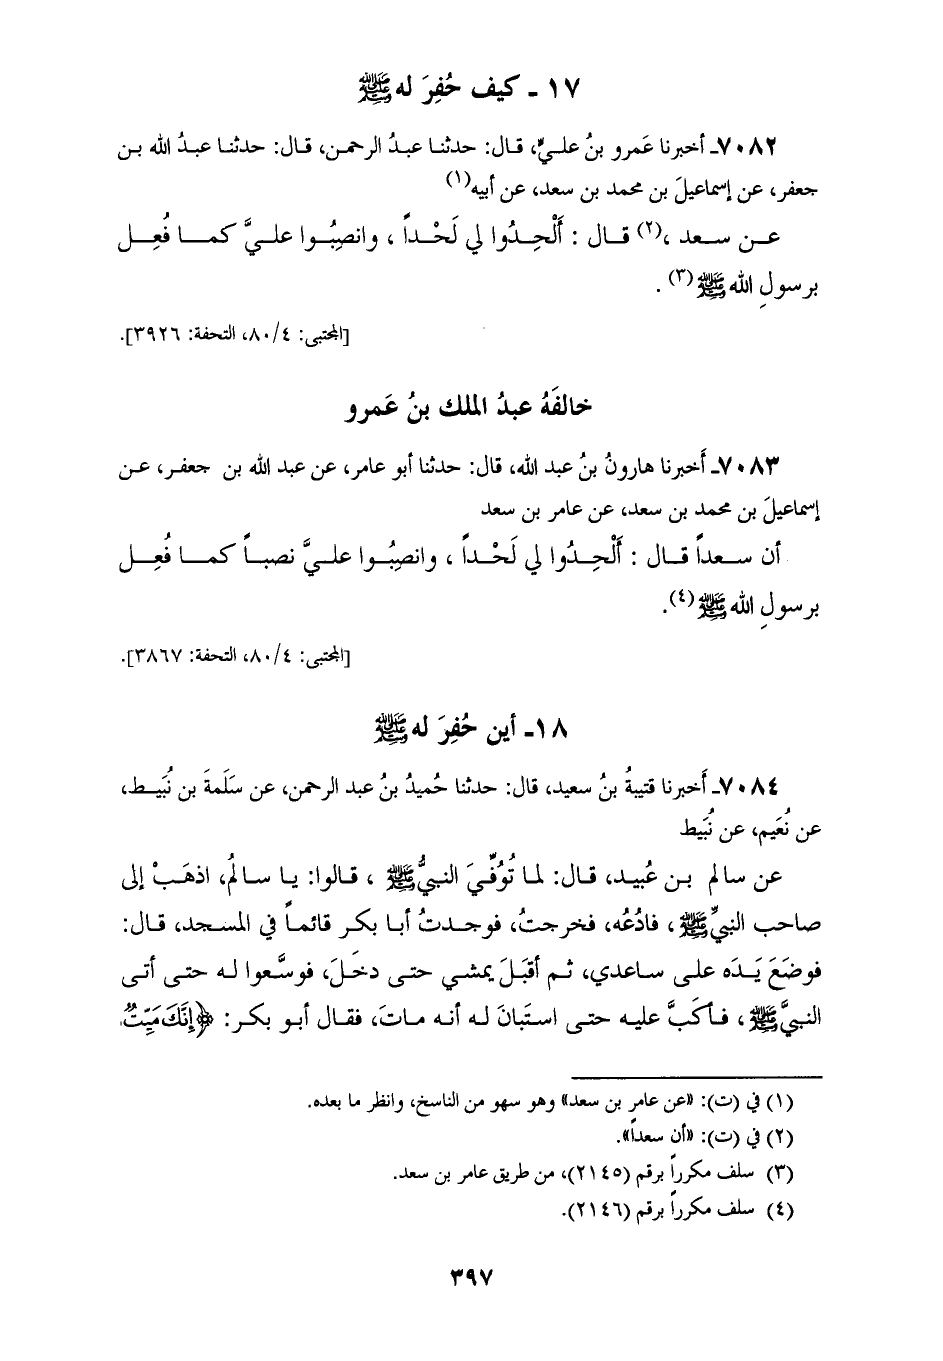 ١٧ ـ كيف حُفِرَ له ﷺ
٧٠٨٢ـ أخبرنا عَمرو بنُ عليٍّ، قال: حدثنا عبدُ الرحمن، قال: حدثنا عبدُ الله بن
جعفر، عن إسماعيلَ بن محمد بن سعد، عن أبيه(١)
عن سعد ،(٢) قال : أَلْحِدُوا لي لَحْداً ، وانصِبُوا عليَّ كما فُعِل
برسولِ الله ﷺ(٣) .
[المجتبى: ٨٠/٤، التحفة: ٣٩٢٦].
خالفَهُ عبدُ الملك بنُ عَمرو
٧٠٨٣ـ أَخبرنا هارونُ بنُ عبد الله، قال: حدثنا أبو عامر، عن عبد الله بن جعفر، عن
إسماعيلَ بن محمد بن سعد، عن عامر بن سعد
أن سعداً قال : أَلْحِدُوا لي لَحْداً ، وانصِبُوا عليَّ نصباً كما فُعِل
برسولِ الله ﷺ(٤).
[المجتبى: ٨٠/٤، التحفة: ٣٨٦٧].
١٨ـ أين حُفِرَ له ﷺ
٧٠٨٤ـ أَخبرنا قتيبةُ بنُ سعيد، قال: حدثنا حُميدُ بنُ عبد الرحمن، عن سَلَمةَ بن نُبَيط،
عن نُعَيم، عن نُبَيط
عن سالم بن عُبيد، قال: لما تُوُفِّيَ النبيُّ ﷺ ، قالوا: يا سالُم، اذهَبْ إلى
صاحب النبيِّ ﷺ ، فادُعُه، فخرجتُ، فوجدتُ أبا بكر قائماً في المسجد، قال:
فوضَعَ يَدَه على ساعدي، ثم أقبَلَ يمشي حتى دخَلَ، فوسَّعوا له حتى أتى
النبيَّ ﷺ ، فأكَبَّ عليه حتى استَبانَ له أنه ماتَ، فقال أبو بكر: ﴿إِنَّكَ مَيِّتٌ
(١) في (ت): «عن عامر بن سعد» وهو سهو من الناسخ، وانظر ما بعده.
(٢) في (ت): «أن سعداً».
(٣) سلف مكرراً برقم (٢١٤٥)، من طريق عامر بن سعد.
(٤) سلف مكرراً برقم (٢١٤٦).
٣٩٧